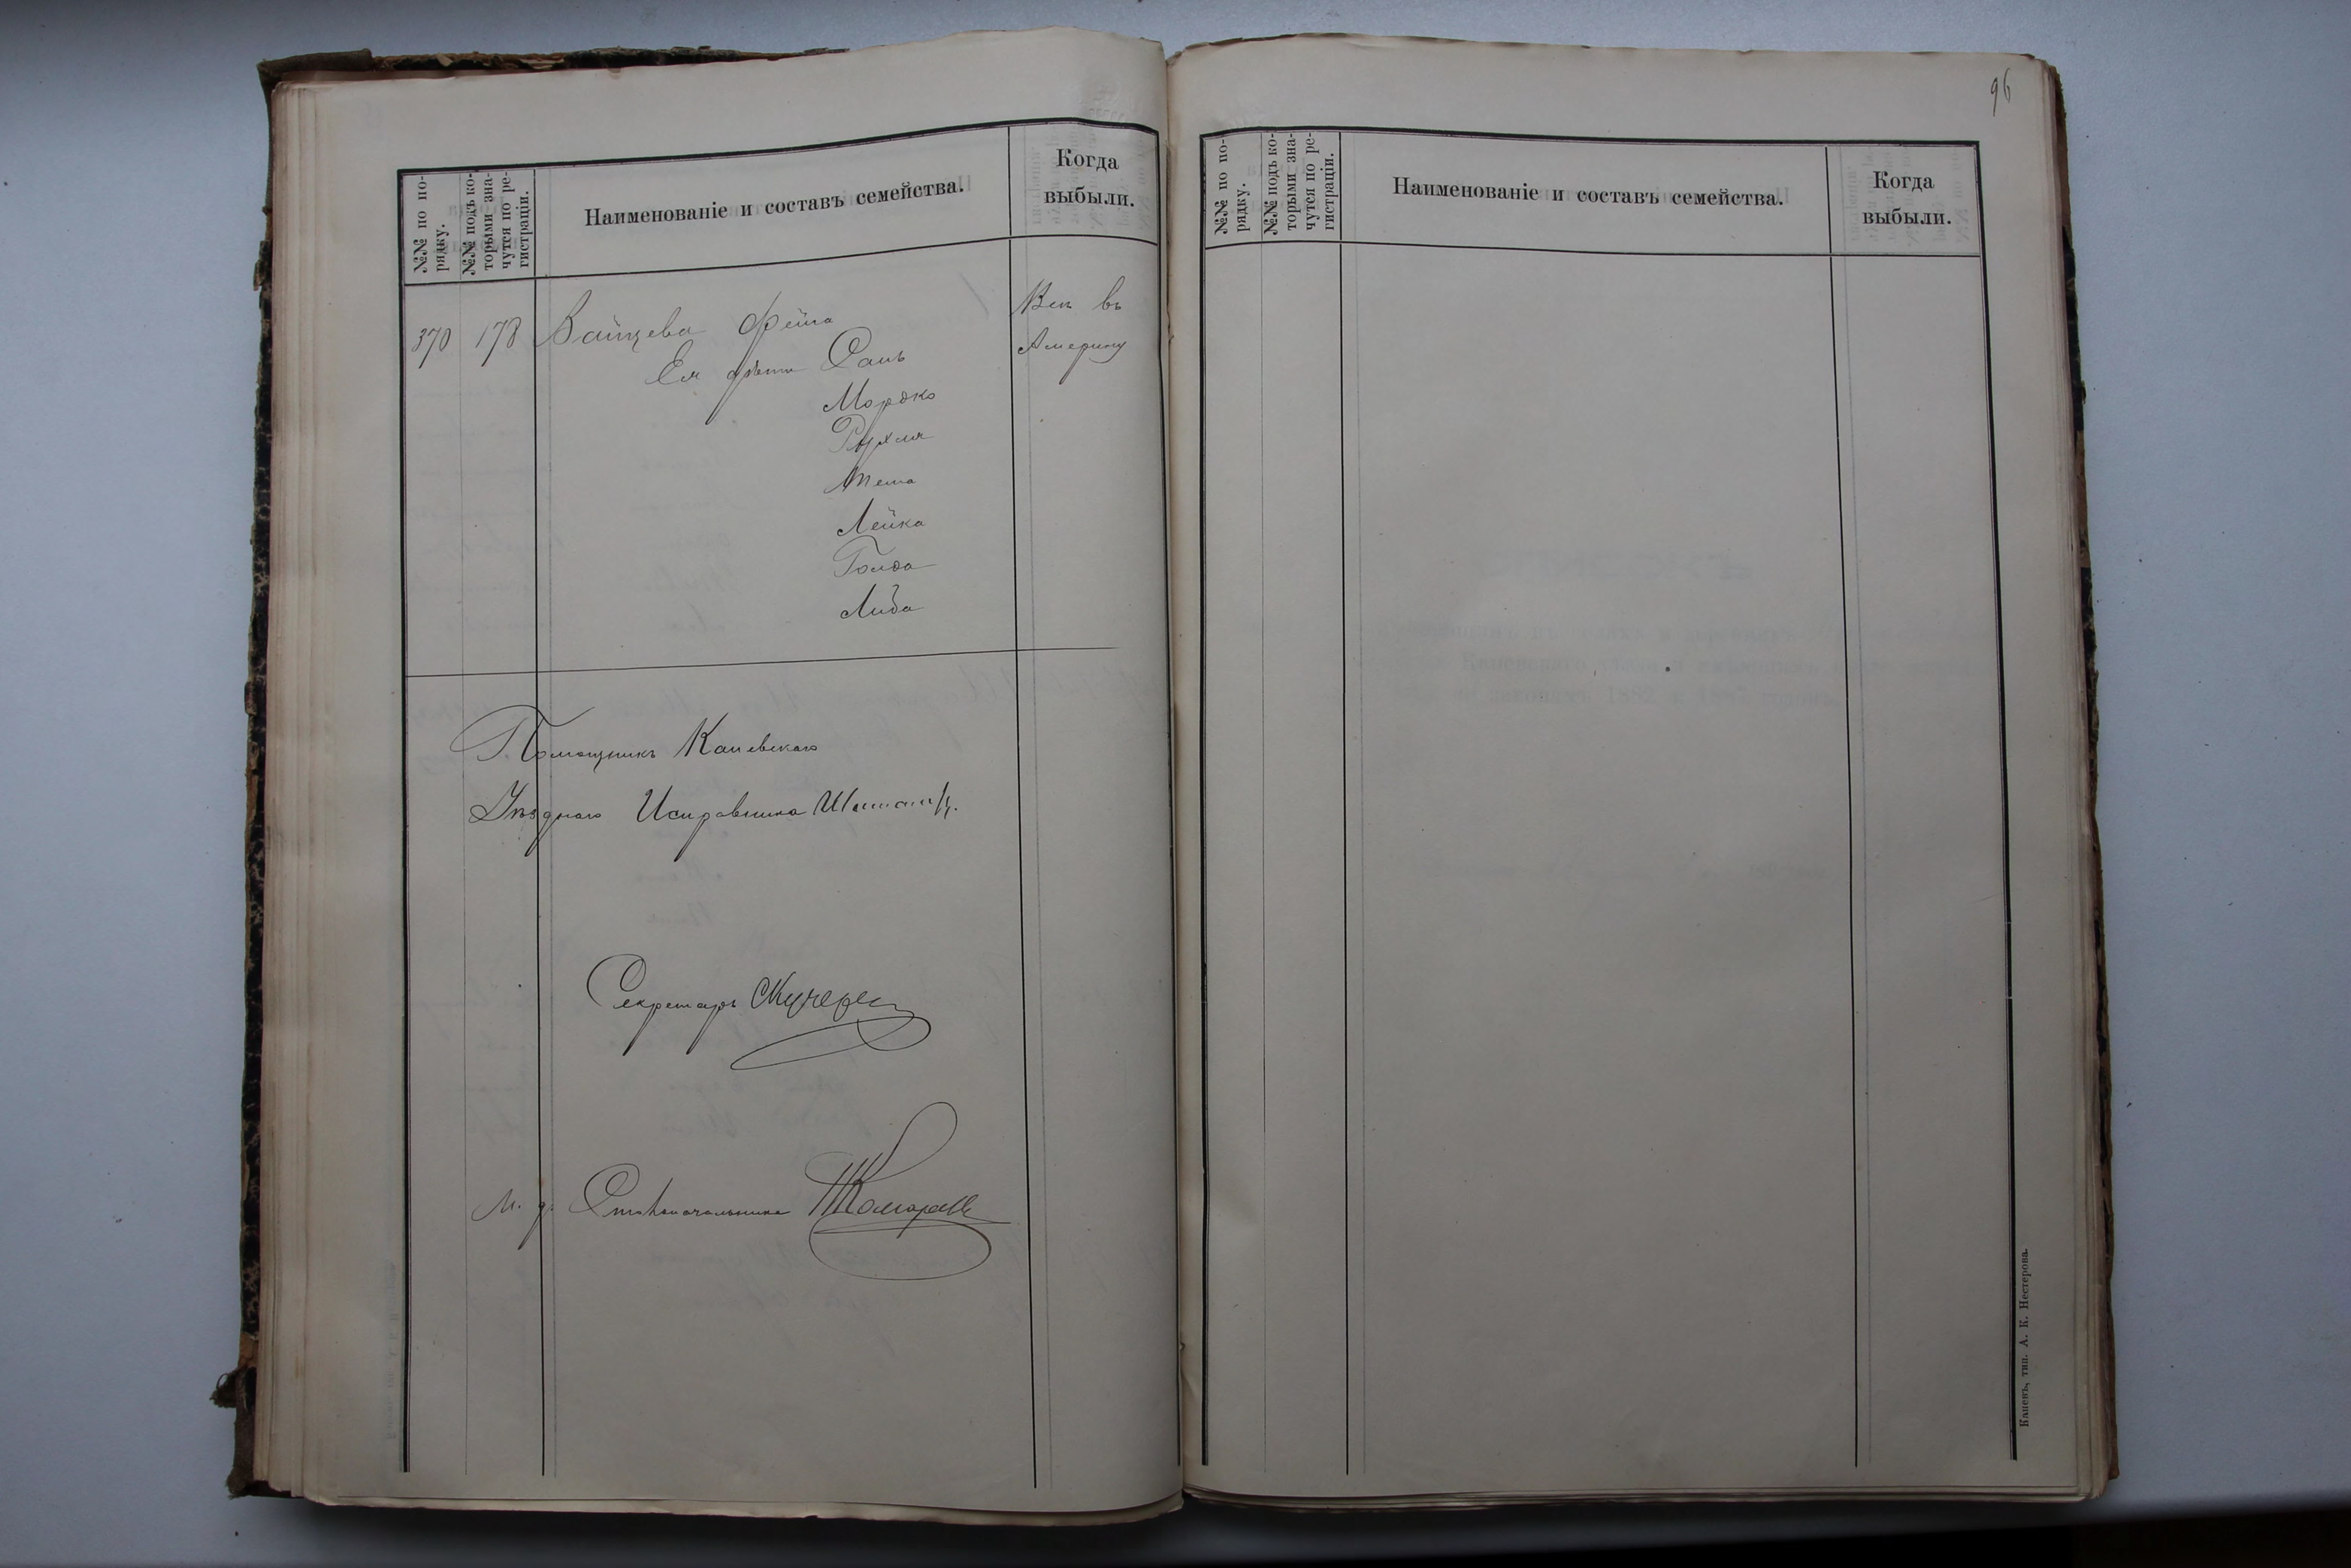 №№ по по-
рядку.
№№ подъ ко-
торыми зна-
чутся по ре-
гистраціи.
Наименованіе и составъ семейства.
Когда
выбыли.
370 178 Вайцева Фейга
Ея дѣти
Мордко
Рухля
Лейка
Голда
Либа
Всѣ въ
Америку
Помощникъ Каневскаго
Уѣзднаго Исправника
Секретарь
И. д. Столоначальника
96
№№ по по-
рядку.
№№ подъ ко-
торыми зна-
чутся по ре-
гистраціи.
Наименованіе и составъ семейства.
Когда
выбыли.
Каневъ, тип. А. К. Нестерова.